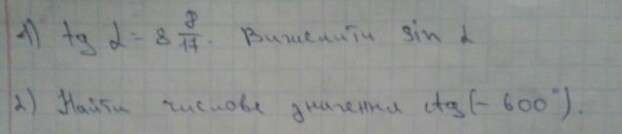 1) tg α = 8 8/17. Вичислити sin α
2) Найти числове значення ctg(-600°).